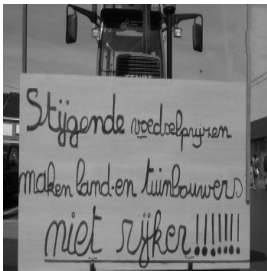 Stijgende voedselprijzen
maken land-en tuinbouwers
niet rijker!!!!!!!